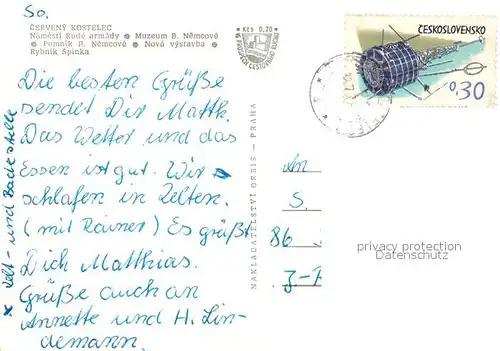 So.
ČERVENÝ KOSTELEC
Náměstí Rudé armády • Muzeum B. Němcové
• Pomník B. Němcové • Nová výstavba •
Rybník Špinka
Kčs 0,70
ČESKOSLOVENSKO
0,30
Die besten Grüße
sendet Dir Matth.
Das Wetter und das
Essen ist gut. Wir
schlafen in Zelten.
(mit Rainer) Es grüßt
Dich Matthias.
Grüße auch an
Annette und H. Lin-
demann.
x Zelt- und Badestelle
NAKLADATELSTVÍ ORBIS - PRAHA
An
S.
86
privacy protection
Datenschutz